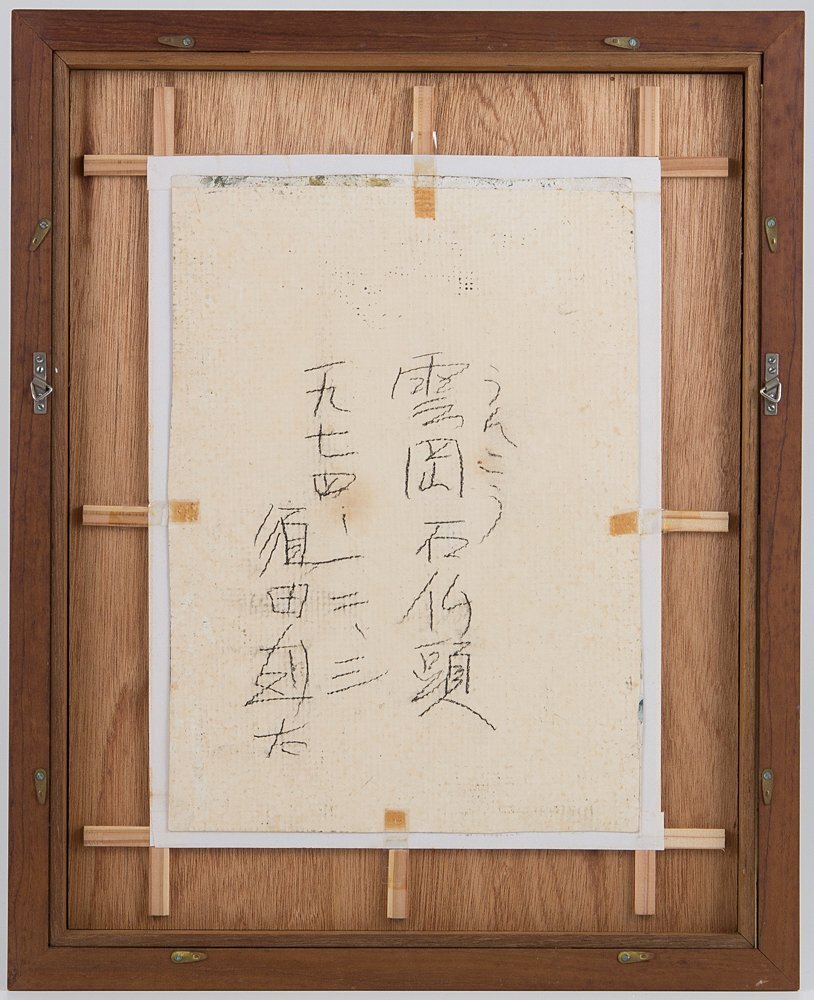 うんこう
雲岡石仏頭
一九七四、一二、三
須田剋太